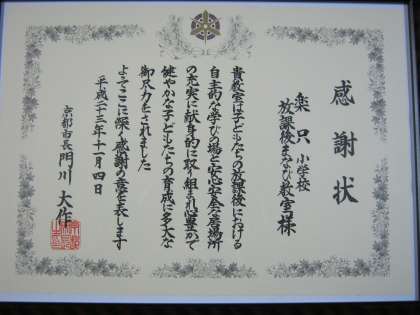 感謝状
楽只小学校
放課後まなび教室様
貴教室は子どもたちの放課後における
自主的な学びの場と安心安全な居場所
の充実に献身的に取り組まれ心豊かで
健やかな子どもたちの育成に多大な
御尽力をされました
よってここに深く感謝の意を表します
平成二十三年十一月四日
京都市長 門川 大作